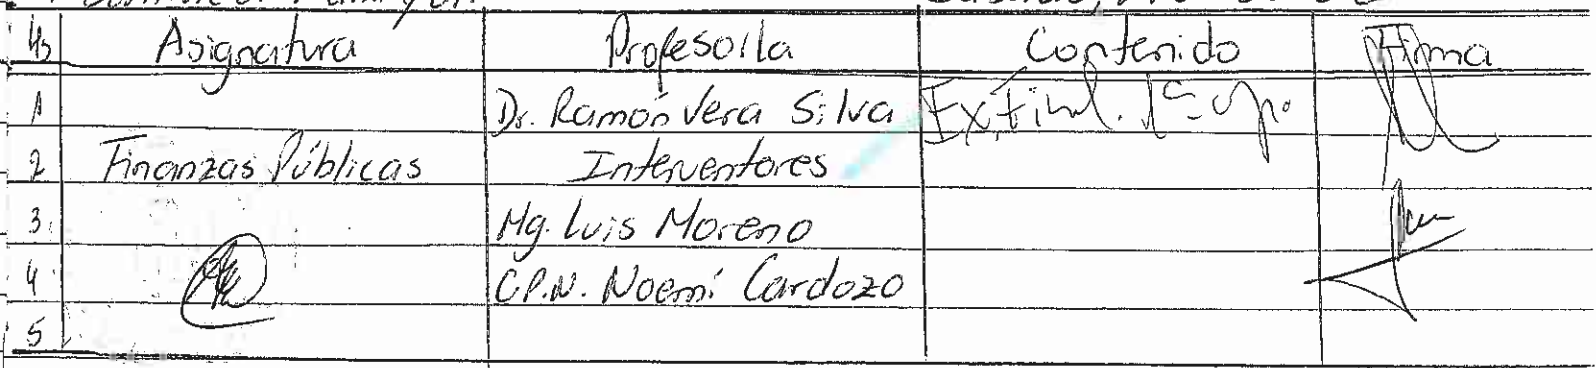 Hs Asignatura Profesor/la Contenido Firma
1 Dr. Ramón Vera Silva Ex. Final.
2 Finanzas Públicas Interventores
3 Mg. Luis Moreno
4 C.P.N. Noemí Cardozo
5